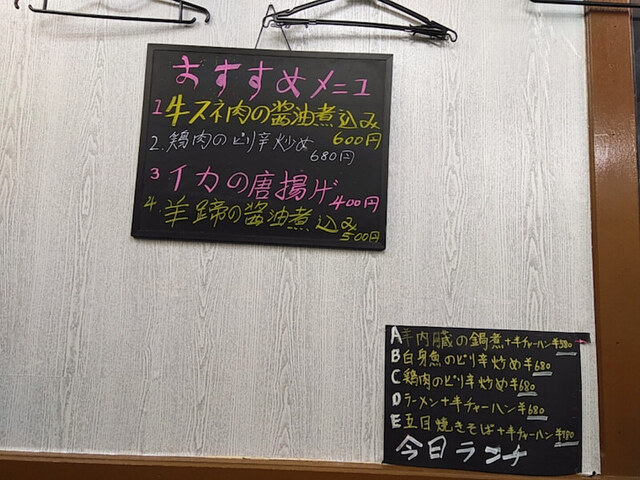 おすすめメニュ
1 牛スネ肉の醤油煮込み 600円
2.鶏肉のピリ辛炒め 680円
3 イカの唐揚げ 400円
4 羊蹄の醤油煮込み 500円
A 羊内臓の鍋煮+半チャーハン¥580
B 白身魚のピリ辛炒め¥680
C 鶏肉のピリ辛炒め¥680
D ラーメン+半チャーハン¥680
E 五目焼きそば+半チャーハン¥780
今日ランチ